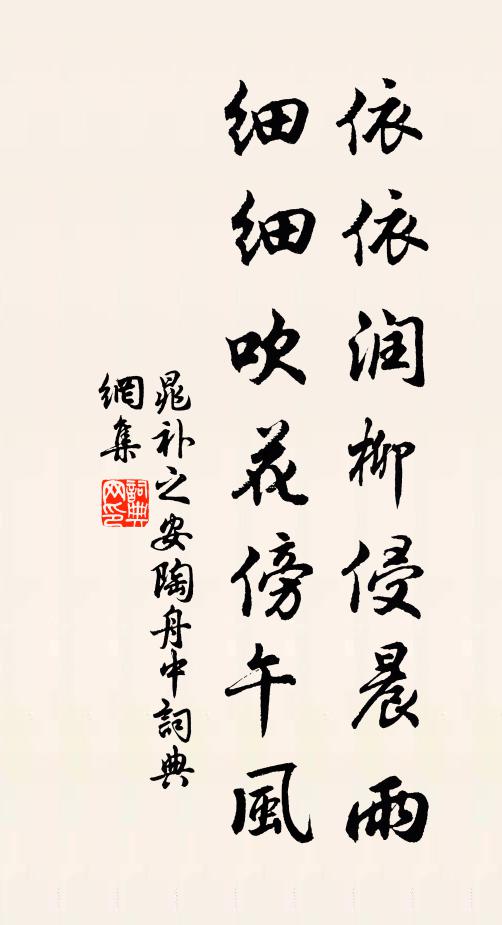 依依润柳侵晨雨
细细吹花傍午風
晁补之安陶舟中詞典
網集
詞典網印